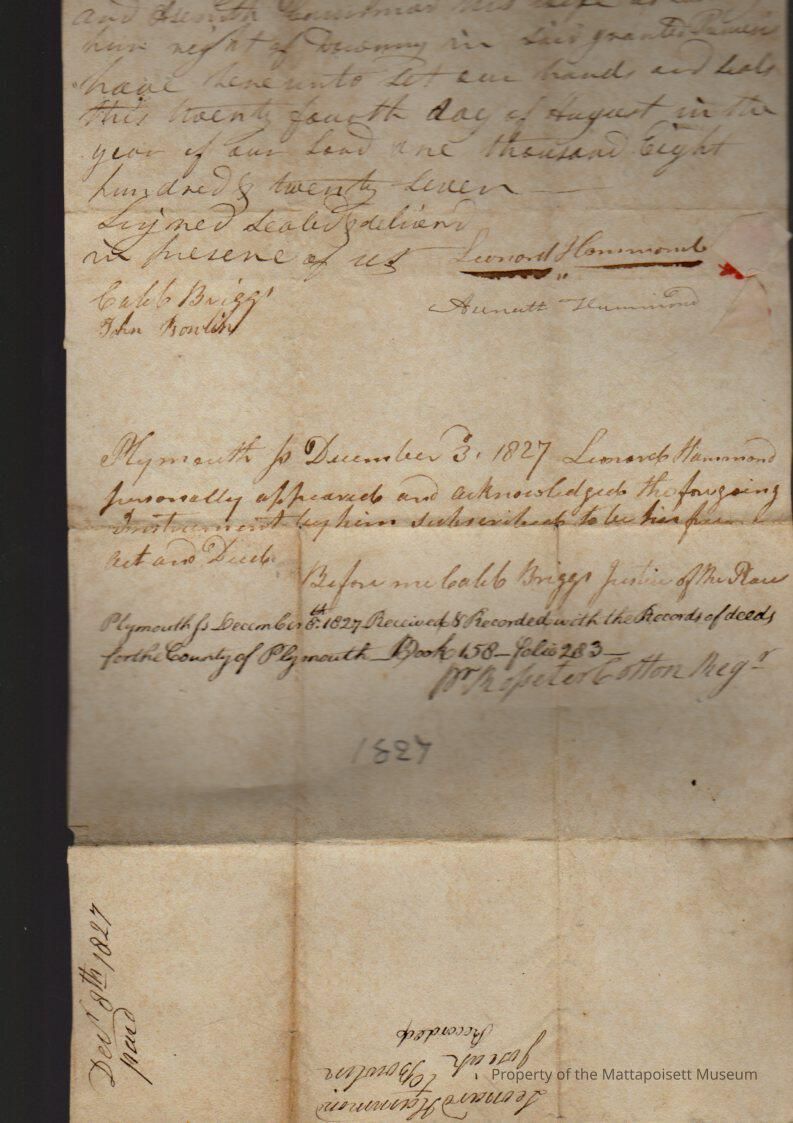 and his wife
her right of Dowery in said granted
have hereunto set our hands and seals
this twenty fourth day of August in the
year of our Lord one thousand Eight
hundred & twenty Seven
Signed Sealed & deliverd
in presene of us Leonard Hammond
Caleb Briggs
Hammond
John Bowlin
Plymouth ss December 3. 1827 Leonard Hammond
personally appeared and acknowledged the foregoing
Instrument by him subscribed to be his free
act and Deed
Before me Caleb Briggs Justice of the Peace
Plymouth ss December 8th. 1827 Received & Recorded with the Records of deeds
for the County of Plymouth Book 158 - folio 283
Pr Rosseter Cotton Regr
1827
Decr 8th 1827
paid
Leonard Hammond
Josiah Bowlin
Recorded
Property of the Mattapoisett Museum